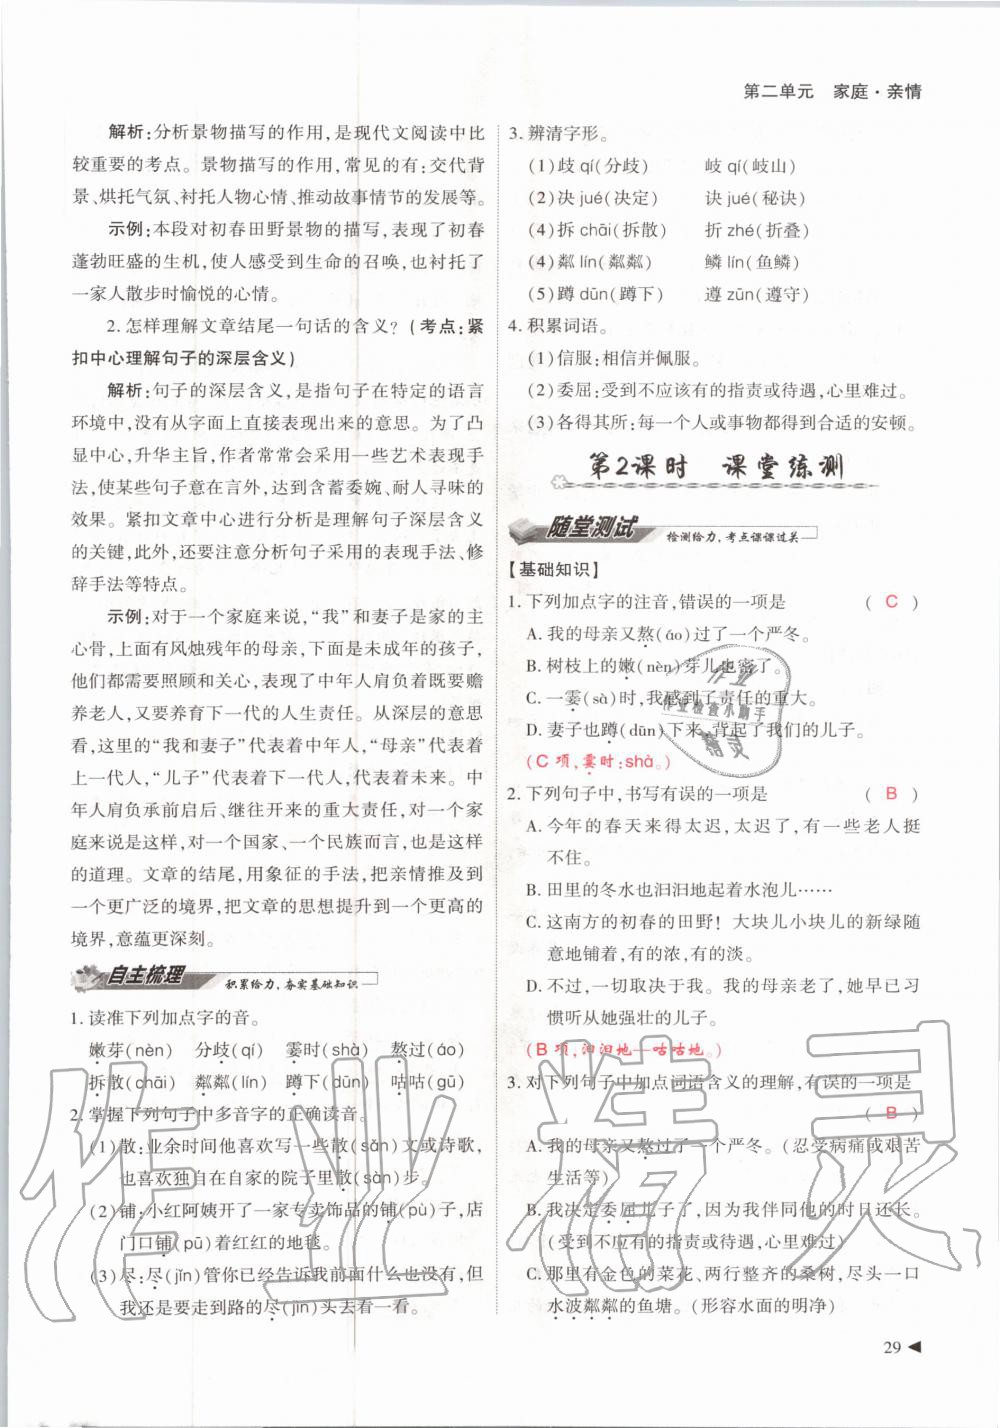 第二单元　家庭·亲情
解析:分析景物描写的作用,是现代文阅读中比
较重要的考点。景物描写的作用,常见的有:交代背
景、烘托气氛、衬托人物心情、推动故事情节的发展等。
示例:本段对初春田野景物的描写,表现了初春
蓬勃旺盛的生机,使人感受到生命的召唤,也衬托了
一家人散步时愉悦的心情。
2. 怎样理解文章结尾一句话的含义?(考点:紧
扣中心理解句子的深层含义)
解析:句子的深层含义,是指句子在特定的语言
环境中,没有从字面上直接表现出来的意思。为了凸
显中心,升华主旨,作者常常会采用一些艺术表现手
法,使某些句子意在言外,达到含蓄委婉、耐人寻味的
效果。紧扣文章中心进行分析是理解句子深层含义
的关键,此外,还要注意分析句子采用的表现手法、修
辞手法等特点。
示例:对于一个家庭来说,“我”和妻子是家的主
心骨,上面有风烛残年的母亲,下面是未成年的孩子,
他们需要照顾和关心,表现了中年人肩负着既要赡
养老人,又要养育下一代的人生责任。从深层的意思
看,这里的“我和妻子”代表着中年人,“母亲”代表着
上一代人,“儿子”代表着下一代人,代表着未来。中
年人肩负承前启后、继往开来的重大责任,对一个家
庭来说是这样,对一个国家、一个民族而言,也是这样
的道理。文章的结尾,用象征的手法,把亲情推及到
一个更广泛的境界,把文章的思想提升到一个更高的
境界,意蕴更深刻。
自主梳理　积累给力,夯实基础知识
1. 读准下列加点字的音。
嫩芽(nèn)　分歧(qí)　霎时(shà)　熬过(áo)
拆散(chāi)　粼粼(lín)　蹲下(dūn)　咕咕(gū)
2. 掌握下列句子中多音字的正确读音。
(1)散:业余时间他喜欢写一些散(sǎn)文或诗歌,
也喜欢独自在自家的院子里散(sàn)步。
(2)铺:小红阿姨开了一家专卖饰品的铺(pù)子,店
门口铺(pū)着红红的地毯。
(3)尽:尽(jǐn)管你已经告诉我前面什么也没有,但
我还是要走到路的尽(jìn)头去看一看。
3. 辨清字形。
(1)歧 qí(分歧)　岐 qí(岐山)
(2)决 jué(决定)　诀 jué(秘诀)
(4)拆 chāi(拆散)　折 zhé(折叠)
(4)粼 lín(粼粼)　鳞 lín(鱼鳞)
(5)蹲 dūn(蹲下)　遵 zūn(遵守)
4. 积累词语。
(1)信服:相信并佩服。
(2)委屈:受到不应该有的指责或待遇,心里难过。
(3)各得其所:每一个人或事物都得到合适的安顿。
第2课时　课堂练测
随堂测试　检测给力,考点课课过关
【基础知识】
1. 下列加点字的注音,错误的一项是　( C )
A. 我的母亲又熬(áo)过了一个严冬。
B. 树枝上的嫩(nèn)芽儿也密了。
C. 一霎(sà)时,我感到了责任的重大。
D. 妻子也蹲(dūn)下来,背起了我们的儿子。
(C 项,霎时:shà。)
2. 下列句子中,书写有误的一项是　( B )
A. 今年的春天来得太迟,太迟了,有一些老人挺
不住。
B. 田里的冬水也汩汩地起着水泡儿……
C. 这南方的初春的田野!大块儿小块儿的新绿随
意地铺着,有的浓,有的淡。
D. 不过,一切都取决于我。我的母亲老了,她早已习
惯听从她强壮的儿子。
(B 项,汩汩地—咕咕地。)
3. 对下列句子中加点词语含义的理解,有误的一项是
( B )
A. 我的母亲又熬过了一个严冬。(忍受病痛或艰苦
生活等)
B. 我决定委屈儿子了,因为我伴同他的时日还长。
(受到不应有的指责或待遇,心里难过)
C. 那里有金色的菜花、两行整齐的桑树,尽头一口
水波粼粼的鱼塘。(形容水面的明净)
29
作业
作业检查小助手
精灵
作业精灵